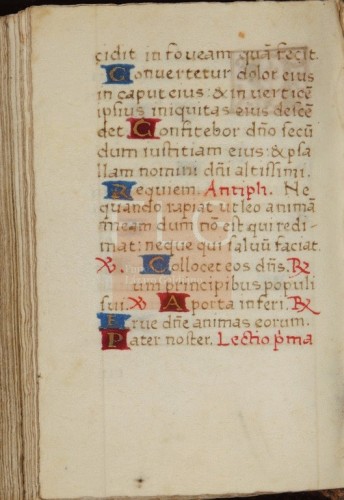 cidit in foveam quā fecit.
Convertetur dolor eius
in caput eius: & in verticē
ipsius iniquitas eius descē
det. Confitebor dño secū
dum iustitiam eius: & psa
llam nomini dñi altissimi.
Requiem. Antiph. Ne
quando rapiat ut leo animā
meam dum nō est qui redi-
mat: neque qui salvū faciat.
℣. Collocet eos dñs. ℟
um principibus populi
sui. ℣ A porta inferi. ℟
Erue dñe animas eorum.
Pater noster. Lectio p̄ma